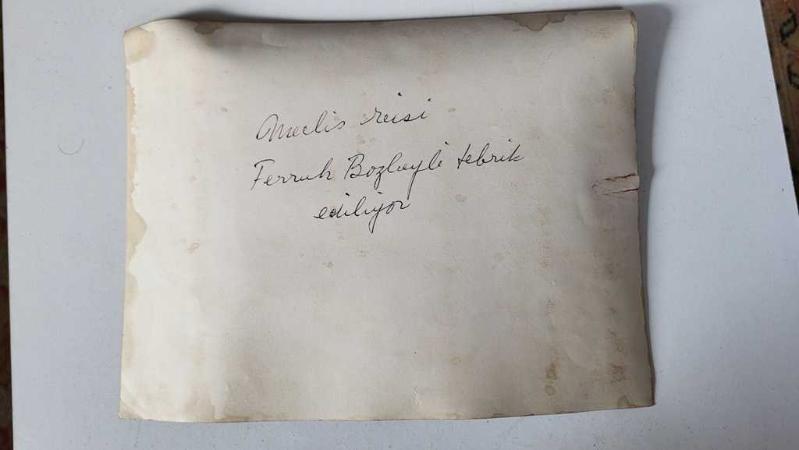 Meclis reisi
Ferruh Bozbeyli tebrik
ediliyor